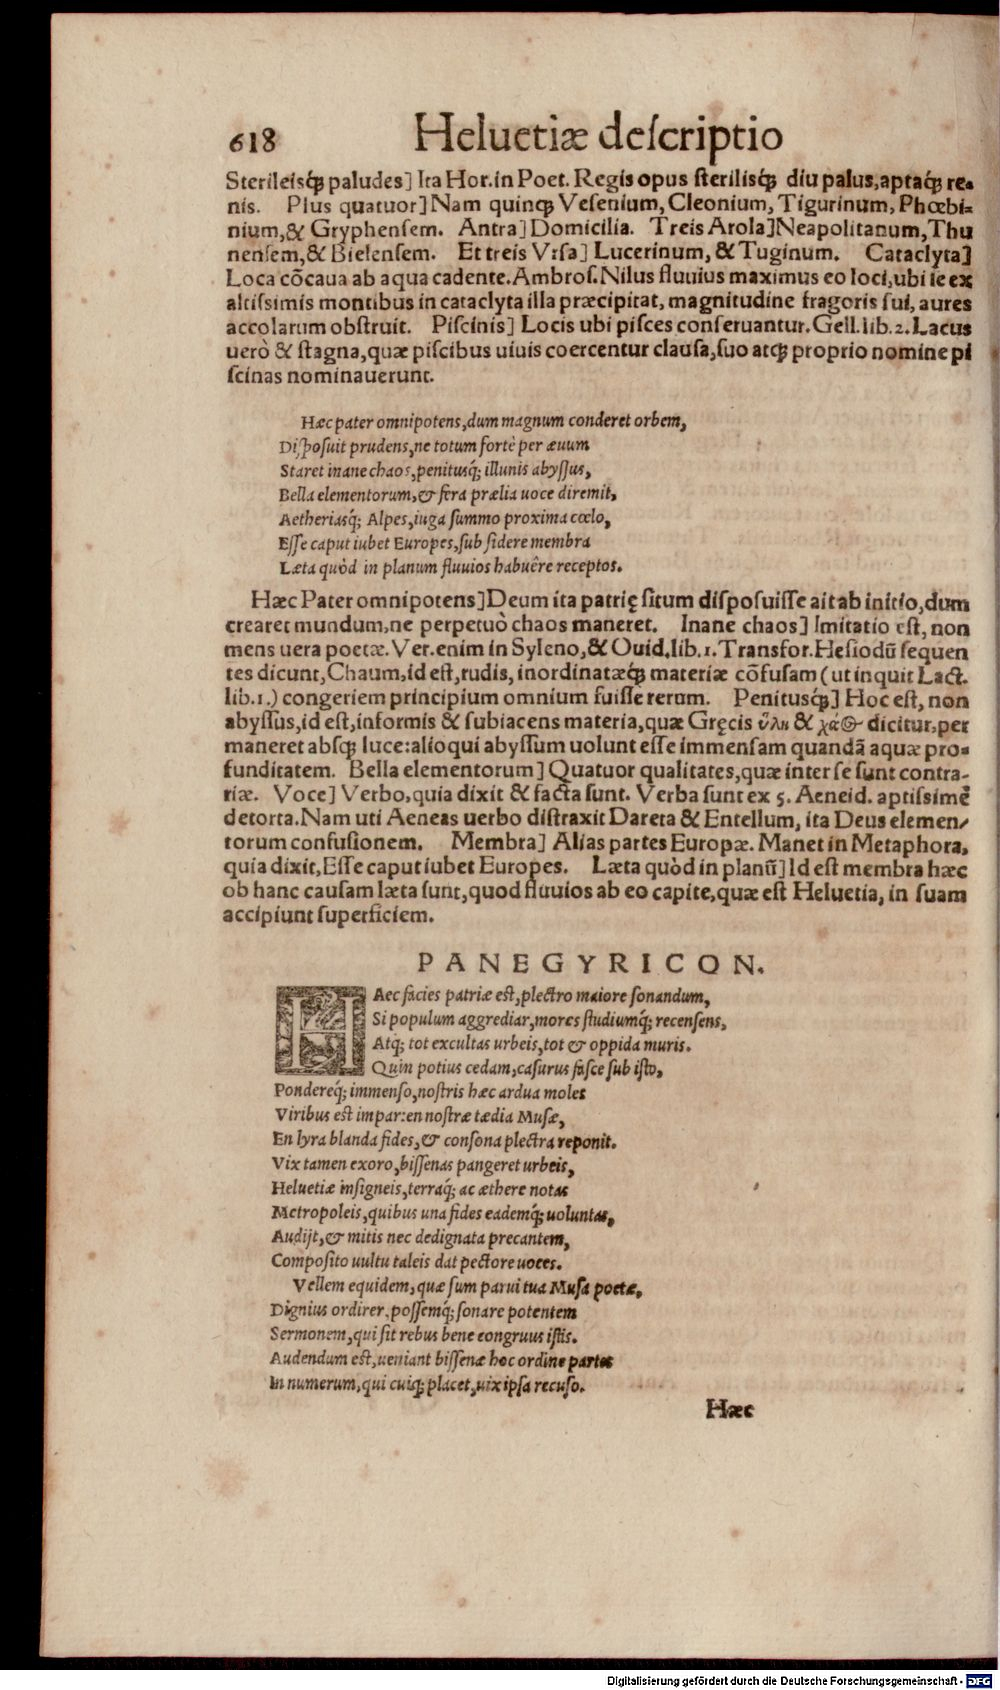 618 Heluetiæ deſcriptio
Sterileisq́; paludes] Ita Hor. in Poet. Regis opus ſteriliśq; diu palus, aptaq́; re-
nis. Plus quatuor] Nam quinq; Veſenium, Cleonium, Tigurinum, Phœbi-
nium, & Gryphenſem. Antra] Domicilia. Treis Arola] Neapolitanum, Thu
nenſem, & Bielenſem. Et treis Vrſa] Lucerinum, & Tuginum. Cataclyta]
Loca cõcaua ab aqua cadente. Ambroſ. Nilus fluuius maximus eo loci, ubi ſe ex
altiſsimis montibus in cataclyta illa præcipitat, magnitudine fragoris ſui, aures
accolarum obſtruit. Piſcinis] Locis ubi piſces conſeruantur. Gell. lib. 2. Lacus
uerò & ſtagna, quæ piſcibus uiuis coercentur clauſa, ſuo atq; proprio nomine pi
ſcinas nominauerunt.
Hæc pater omnipotens, dum magnum conderet orbem,
Diſpoſuit prudens, ne totum fortè per æuum
Staret inane chaos, penitusq́; illunis abyſſus,
Bella elementorum, & fera prælia uoce diremit,
Aetheriasq́; Alpes, iuga ſummo proxima cœlo,
Eſſe caput iubet Europes, ſub ſidere membra
Læta quòd in planum fluuios habuêre receptos.
Hæc Pater omnipotens] Deum ita patrię ſitum diſpoſuiſſe ait ab initio, dum
crearet mundum, ne perpetuò chaos maneret. Inane chaos] Imitatio eſt, non
mens uera poetæ. Ver. enim in Syleno, & Ouid. lib. 1. Transfor. Heſiodũ ſequen
tes dicunt, Chaum, id eſt, rudis, inordinatæq́; materiæ cõfuſam (ut inquit Lact.
lib. 1.) congeriem principium omnium fuiſſe rerum. Penitusq́;] Hoc eſt, non
abyſſus, id eſt, informis & ſubiacens materia, quæ Gręcis ὕλη & χάος dicitur, per
maneret absq; luce: alioqui abyſſum uolunt eſſe immenſam quandã aquæ pro-
funditatem. Bella elementorum] Quatuor qualitates, quæ inter ſe ſunt contra-
riæ. Voce] Verbo, quia dixit & facta ſunt. Verba ſunt ex 5. Aeneid. aptiſsimè
detorta. Nam uti Aeneas uerbo diſtraxit Dareta & Entellum, ita Deus elemen-
torum confuſionem. Membra] Alias partes Europæ. Manet in Metaphora,
quia dixit, Eſſe caput iubet Europes. Læta quòd in planũ] Id eſt membra hæc
ob hanc cauſam læta ſunt, quod fluuios ab eo capite, quæ eſt Heluetia, in ſuam
accipiunt ſuperficiem.
PANEGYRICON.
HAec facies patriæ eſt, plectro maiore ſonandum,
Si populum aggrediar, mores ſtudiumq́; recenſens,
Atq; tot excultas urbeis, tot & oppida muris.
Quin potius cedam, caſurus faſce ſub iſto,
Pondereq́; immenſo, noſtris hæc ardua moles
Viribus eſt impar: en noſtræ tædia Muſæ,
En lyra blanda fides, & conſona plectra reponit.
Vix tamen exoro, biſſenas pangeret urbeis,
Heluetiæ inſigneis, terraq́; ac æthere notas
Metropoleis, quibus una fides eademq́; uoluntas,
Audijt, & mitis nec dedignata precantem,
Compoſito uultu taleis dat pectore uoces.
Vellem equidem, quæ ſum parui tua Muſa poetæ,
Dignius ordirer, poſſemq́; ſonare potentem
Sermonem, qui ſit rebus bene congruus iſtis.
Audendum eſt, ueniant biſſenæ hoc ordine partes
In numerum, qui cuiq; placet, uix ipſa recuſo.
Hæc
Digitalisierung gefördert durch die Deutsche Forschungsgemeinschaft - DFG